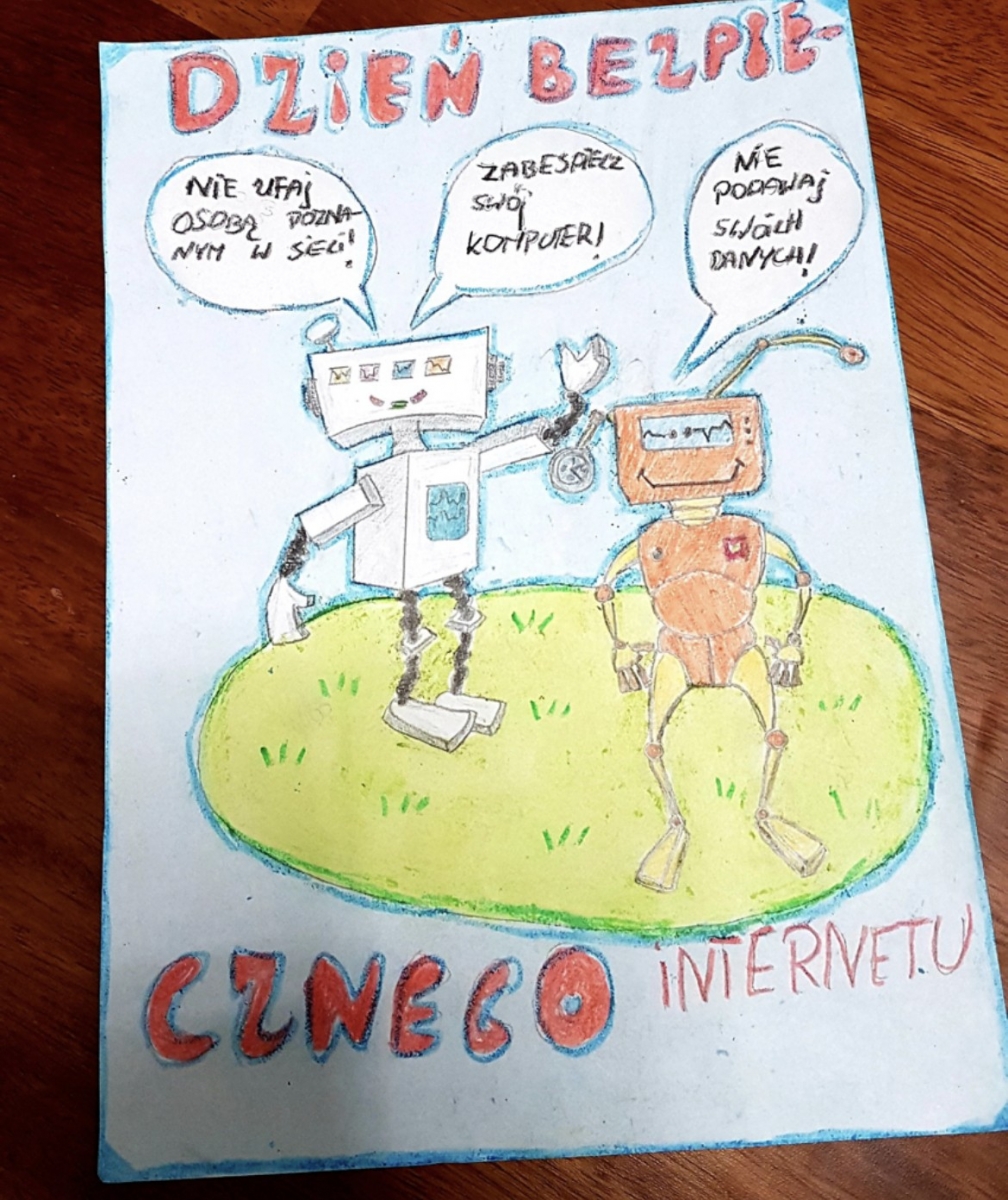 DZIEŃ BEZPIE-
NIE UFAJ
OSOBĄ POZNA-
NYM W SIECI!
ZABESPIECZ
SWÓJ
KOMPUTER!
NIE
PODAWAJ
SWOICH
DANYCH!
CZNEGO INTERNETU